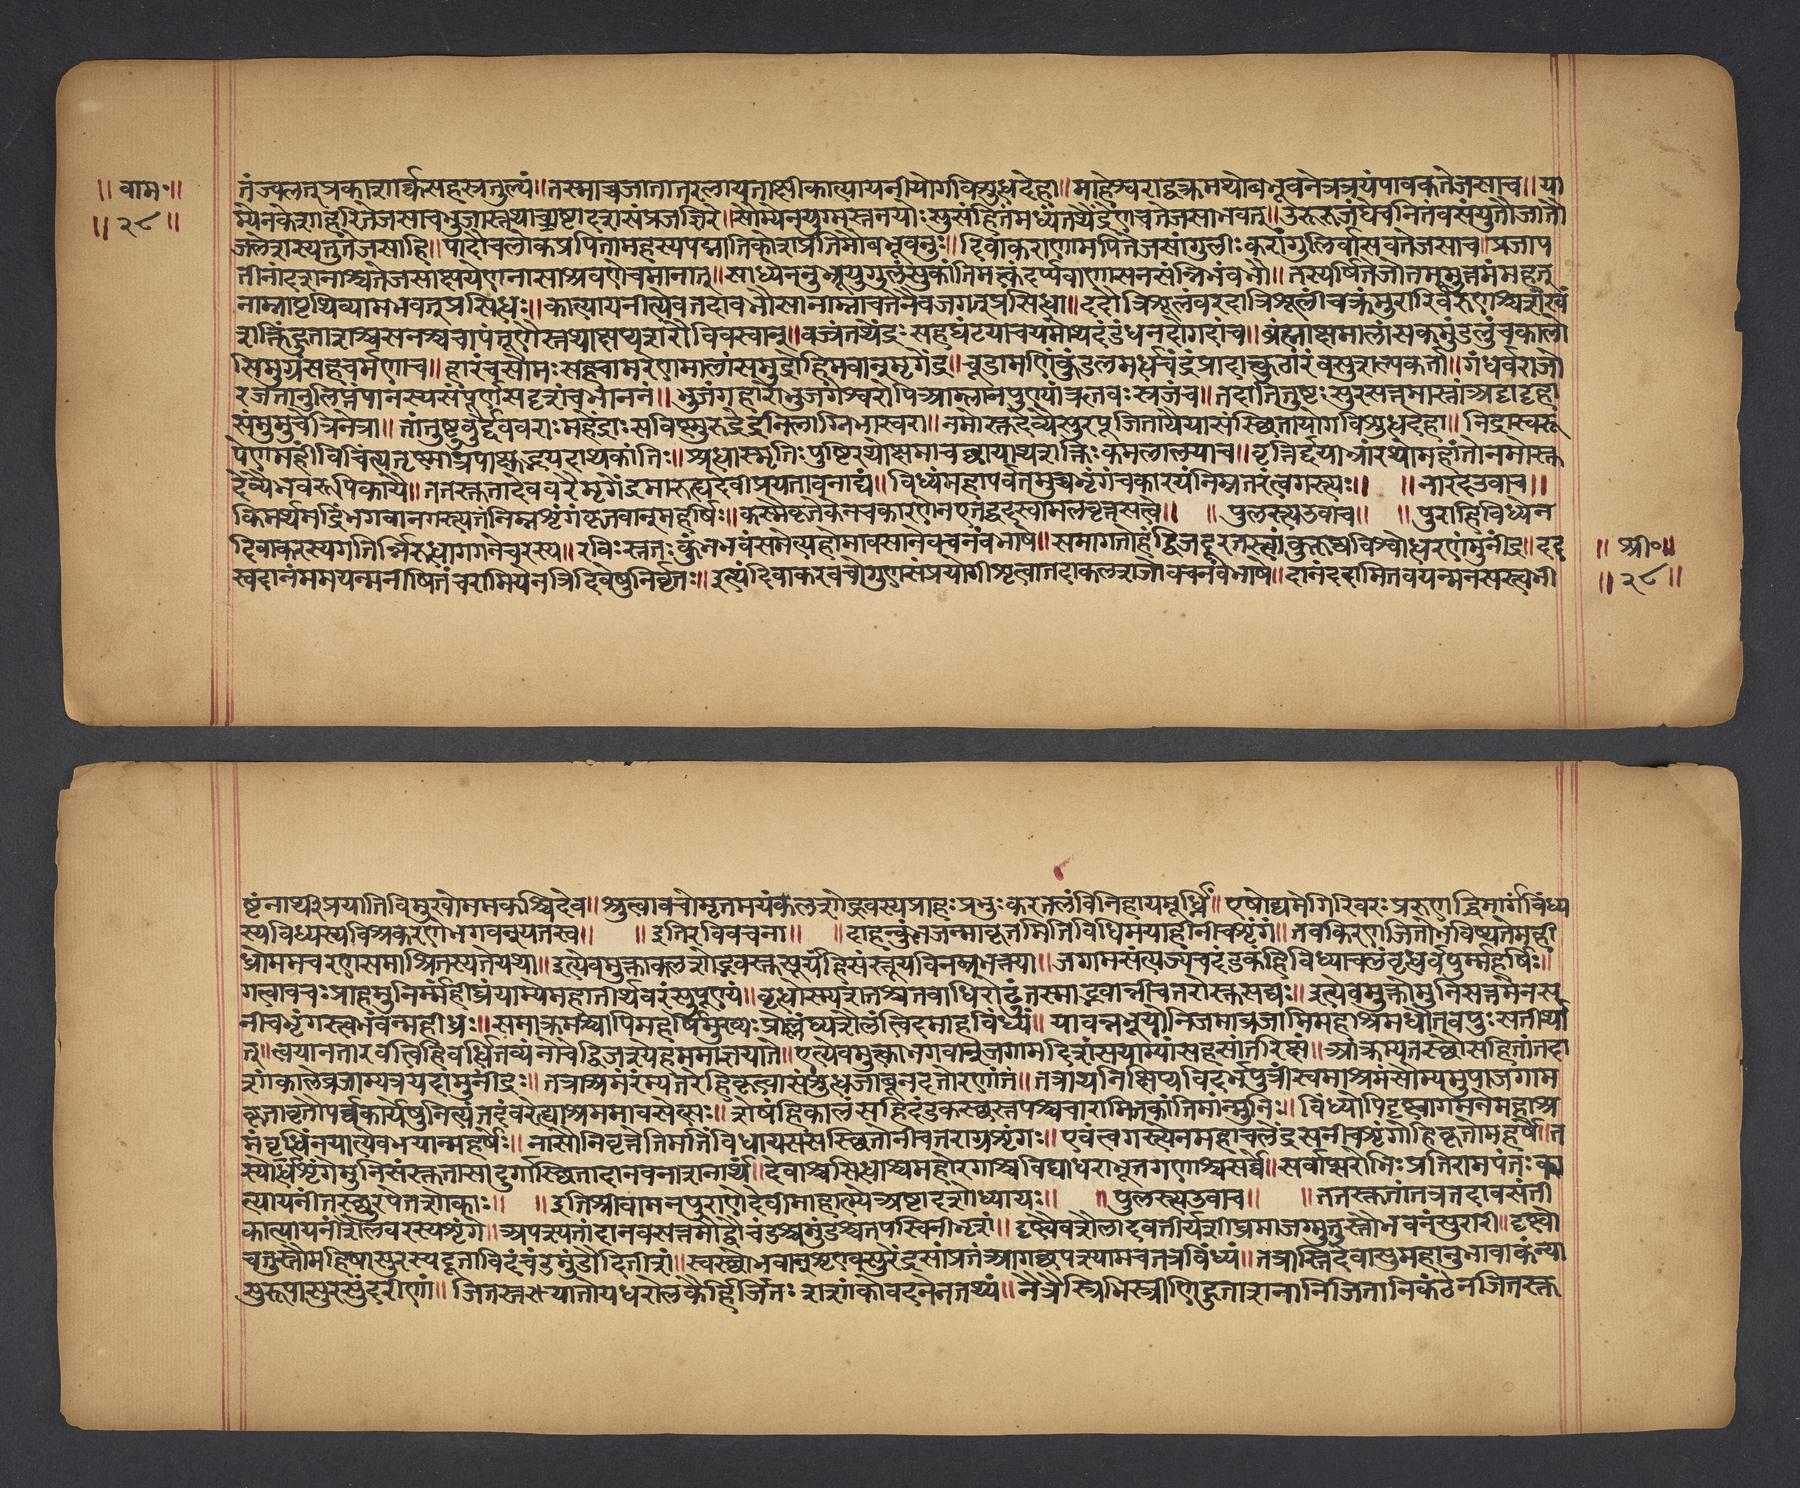 ॥ वाम॰॥
॥ २८॥
तंज्वलत्प्रकाशार्कसहस्रतुल्यं॥तस्माच्चजातातरलायताक्षीकात्यायनीयोगविशुद्धदेहा॥माहेश्वराद्वक्त्रमथोबभूवनेत्रत्रयंपावकतेजसाच॥या
म्येनकेशाहरितेजसाचभुजास्तथाष्टादशसंप्रजज्ञिरे॥सौम्येनयुग्मंस्तनयोःसुसंहितंमध्यंतथैंद्रेणचतेजसाभवत्॥उरूरुजंघेचनितंबसंयुतेजातौ
जलेशस्यतुतेजसाहि॥पादौचलोकप्रपितामहस्यपद्माभिकोशप्रतिमौबभूवतुः॥दिवाकराणामपितेजसांगुलीःकरांगुलिर्वासवतेजसाच॥प्रजाप
तीनांदशनाश्चतेजसायक्षेणनासाश्रवणौचमारुतात्॥साध्येनतुभ्रूयुगलंसुकांतिमत्कंदर्पबाणासनसंन्निभंबभौ॥तस्यर्षितेजोत्तममुत्तमंमहत्
नाम्नापृथिव्यामभवत्प्रसिद्धः॥कात्यायनीत्येवतदाबभौसानाम्नाचतेनैवजगत्प्रसिद्धा॥ददौत्रिशूलंवरदात्रिशूलींचक्रंमुरारिर्वरुणश्चशंखं
शक्तिंहुताशश्वसनश्चचापंतूणौस्तथाक्षय्यशरौविवस्वान्॥वज्रंतथेंद्रःसहघंटयाचयमोथदंडंधनदोगदांच॥ब्रह्माक्षमालांसकमंडलुंचकालो
सिमुग्रंसहचर्मणाच॥हारंचसोमःसहचामरेणमालांसमुद्रोहिमवान्मृगेंद्रं॥चूडामणिंकुंडलमर्धचंद्रंप्रादात्कुठारंवसुशिल्पकर्ता॥गंधर्वराजो
रजतानुलिप्तंपानस्यसंपूर्णसदृशंचभाजनं॥भुजंगहारोभुजगेश्वरोपिअम्लानपुष्पांऋतवःस्रजंच॥तदातितुष्टःसुरसत्तमास्तांअट्टाट्टहासं
संमुमुचेत्रिनेत्रा॥तांतुष्टुवुर्द्देववराःमहेंद्राःसविष्णुरुद्रेंद्वनिलाग्निभास्करा॥नमोस्तुदेव्यैसुरपूजितायैयासंस्थितायोगविशुद्धदेहा॥निद्रास्वरू
पेणमहींवितत्यतृष्णात्रपाक्षुद्भयदाथकांतिः॥श्रद्धास्मृतिःपुष्टिरथोक्षमाचछायाथशक्तिःकमलालयाच॥वृत्तिर्द्दयाभ्रांतिरथोमहांतोनमोस्तु
देव्यैभवरूपिकायै॥ततस्तुतादेववरैर्मृगेंद्रमारुह्यदेवीप्रयतावनाढ्यं॥विंध्यंमहापर्वतमुच्चशृंगंचकारयंनिम्नतरंत्वगस्त्यः॥ ॥नारदउवाच॥
किमर्थमद्रिंभगवानगस्त्यतंनिम्नशृंगंकृतवान्महर्षिः॥कस्मैकृतेकेनचकारणेनएतद्वदस्वामलवृत्तसत्त्वं॥ ॥पुलस्त्यउवाच॥ ॥पुराहिविंध्येन
दिवाकरस्यगतिर्न्निरुद्धागगनेचरस्य॥रविःस्ततःकुंभभवंसमेत्यहोमावसानेवचनंबभाषे॥समागतोहंद्विजदूरतस्त्वांकुरुष्वविश्वोद्धरणंमुनींद्र॥दद
स्वदानंममयन्मनीषितंचरामियेनत्रिदिवेषुनिर्वृतः॥इत्थंदिवाकरवचोगुणसंप्रयोगीश्रुत्वातदाकलशजोवचनंबभाषे॥दानंददामितवयन्मनसस्त्वभी
॥ श्री॰॥
॥ २८॥
ष्टंनार्थीप्रयातिविमुखोममकश्चिदेव॥श्रुत्वावचोमृतमयंकलशोद्भवस्यप्राहःप्रभुःकरतलंविनिधायमूर्ध्नि॥एषोद्यमेगिरिवरःप्ररुणद्धिमार्गंविंध्य
स्यविंध्यस्यविश्रकरणेभगवन्यतस्व॥ ॥इतिरविवचना॥ ॥दाहत्कुंभजन्माकृतमितिविद्धिमयाहीनीचशृंगं॥तवकिरणजितोभविष्यतेमही
ध्रोममचरणसमाश्रितस्यतेव्यथा॥इत्येवमुक्त्वाकलशोद्भवस्तुसूर्यंहिसंस्तूयविनम्रभक्त्या॥जगामसंत्यज्यचदंडकंहिविंध्याचलंवृद्धवपुर्म्महर्षिः॥
गत्वावचःप्राहमुनिर्म्महीध्रंयाम्येमहातीर्थवरंसुपुण्यं॥वृद्धोस्म्यशक्तश्चतवाधिरोढुंतस्माद्भवान्नीचतरोस्तुसद्यः॥इत्येवमुक्तोमुनिसत्तमेनस
नीचशृंगस्त्वभवन्महीध्रः॥समाक्रमच्चापिमहर्षिमुख्यःप्रोल्लंघ्यशैलंत्विदमाहविंध्यं॥यावन्नभूयोनिजमाव्रजामिमहाश्रमंधौतवपुःसतीर्था
त्॥त्वयानतावत्त्विहवर्द्धितव्यंनोचेद्विजशप्येहममावज्ञयाते॥एत्येवमुक्त्वाभगवान्जगामदिशंसयाम्यांसहसांतरिक्षं॥आक्रम्यतस्थौसहितांतदा
शांकालेव्रजाम्यत्रयदामुनींद्रः॥तत्राश्रमंरम्यतरंहिकृत्वासंशुद्धजांबूनदतोरणांतं॥तत्राथनिक्षिप्यविदर्भपुत्रींस्वमाश्रमंसौम्यमुपाजगाम
ऋतावृतौपर्वकार्येषुनित्यंतदंबरेह्याश्रममावसेत्सः॥शेषंहिकालंसहिदंडकस्थस्तपश्चचारामितकांतिमान्मुनिः॥विंध्योपिदृष्ट्वागगनेमहाश्र
मंवृद्धिंनयात्येवभयान्महर्षेः॥नासौनिवृत्तेतिमतिंविधायससंस्थितोनीचतराग्रशृंगः॥एवंत्वगस्त्येनमहाचलेंद्रःसनीचशृंगोहिकृतोमहर्षे॥त
स्योर्ध्वशृंगेमुनिसंस्तुतासादुर्गास्थितादानवनाशनार्थं॥देवाश्चसिद्धाश्चमहोरगाश्चविद्याधराभूतगणाश्चसर्वे॥सर्वाप्सरोभिःप्रतिरामयंतःका
त्यायनींतस्थुरपेतशोकाः॥ ॥इतिश्रीवामनपुराणेदेवीमाहात्म्येअष्टादशोध्यायः॥ ॥पुलस्त्यउवाच॥ ॥ततस्तुतांतत्रतदावसंतीं
कात्यायनींशैलवरस्यशृंगे॥अपश्यतांदानवसत्तमौद्वौचंडश्चमुंडश्चतपस्विनींभृशं॥दृष्ट्वैवशैलादवतीर्यशीघ्रमाजग्मतुस्तौभवनंसुरारी॥दृष्ट्वो
चतुस्तौमहिषासुरस्यदूताविदंचंडमुंडौदितीशं॥स्वस्थोभवान्किंत्वसुरेंद्रसांप्रतंआगच्छपश्यामचतत्रविंध्यं॥तत्रास्तिदेवीसुमहानुभावाकन्या
सुरूपासुरसुंदरीणां॥जितास्तयातोयधरालकैर्हिजितःशशांकोवदनेनतन्व्या॥नेत्रैस्त्रिभिस्त्रीणिहुताशनानिजितानिकंठेनजितस्तु